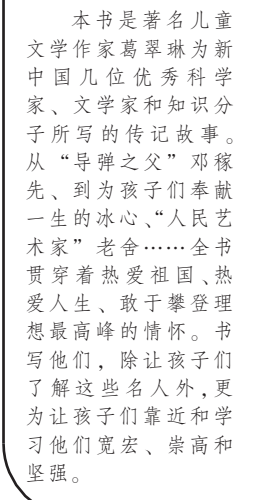 本书是著名儿童
文学作家葛翠琳为新
中国几位优秀科学
家、文学家和知识分
子所写的传记故事。
从“导弹之父”邓稼
先、到为孩子们奉献
一生的冰心、“人民艺
术家”老舍……全书
贯穿着热爱祖国、热
爱人生、敢于攀登理
想最高峰的情怀。书
写他们，除让孩子们
了解这些名人外，更
为让孩子们靠近和学
习他们宽宏、崇高和
坚强。